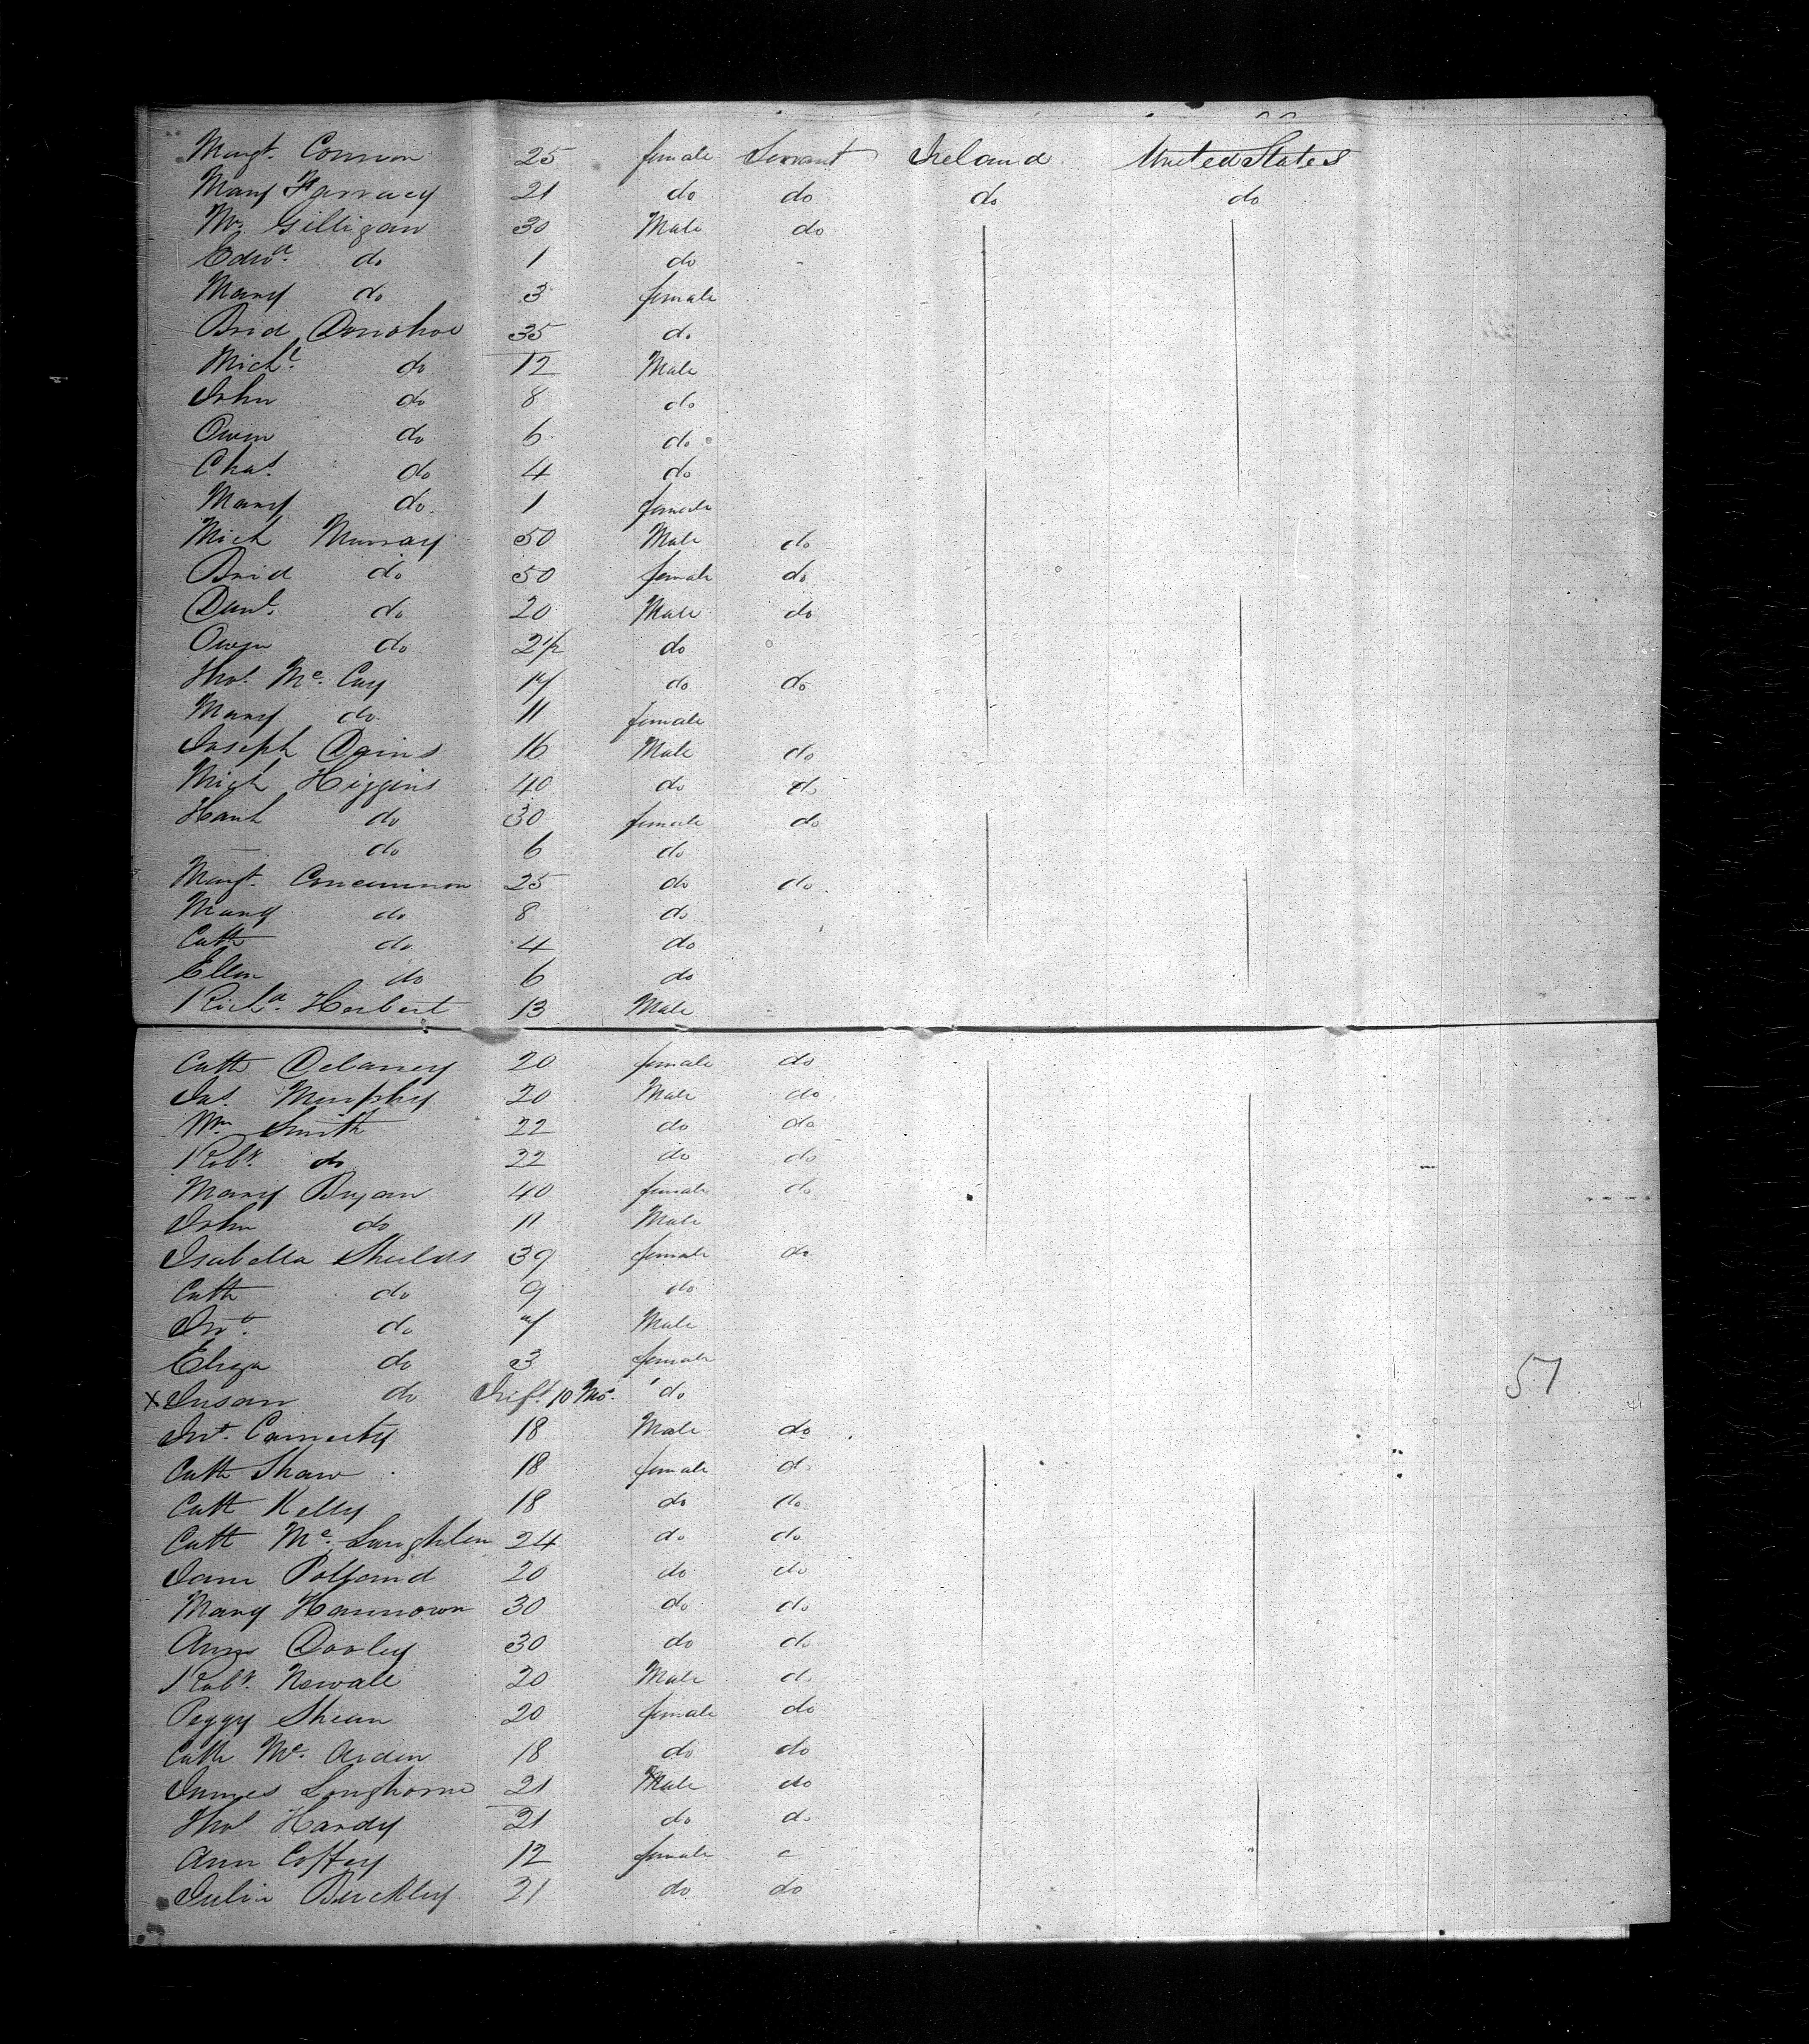 Margt. Connor 25 female Servant Ireland United States
Mary Farracy 21 do do do do
Mr. Gilligan 30 Male do
Edwd. do 1 do
Mary do 3 female
Brid Donohoe 35 do
Michl. do 12 Male
John do 8 do
Owen do 6 do
Chas. do 4 do
Mary do 1 female
Mich Murray 50 Male do
Brid do 50 female do
Danl. do 20 Male do
Owen do 2½ do
Thos. Mc. Cay 14 do do
Mary do 11 female
Joseph 16 Male do
Mich Higgins 40 do do
Hanh do 30 female do
— do 6 do
Margt. Concannon 25 do do
Mary do 8 do
Cath do 4 do
Ellen do 6 do
Richd. Herbert 13 Male
Cath Delaney 20 female do
Jas. Murphy 20 Male do
Wm Smith 22 do do
Robt. do 22 do do
Mary Bryan 40 female do
John do 11 Male
Isabella Shields 39 female do
Cath do 9 do
Jno. do 7 Male
Eliza do 3 female
x Susan do Inft. 10 Mos. do
57
Jno. 18 Male do
Cath Shaw 18 female do
Cath Kelly 18 do do
Cath Mc. Laughlin 24 do do
Jane Pollard 20 do do
Mary Hannown 30 do do
Ann Dooley 30 do do
Robt. Newall 20 Male do
Peggy Shean 20 female do
Cath Mc. Arden 18 do do
James Longhorne 21 Male do
Thos Hardy 21 do do
Ann Coffey 12 female
Julia Buckley 21 do do